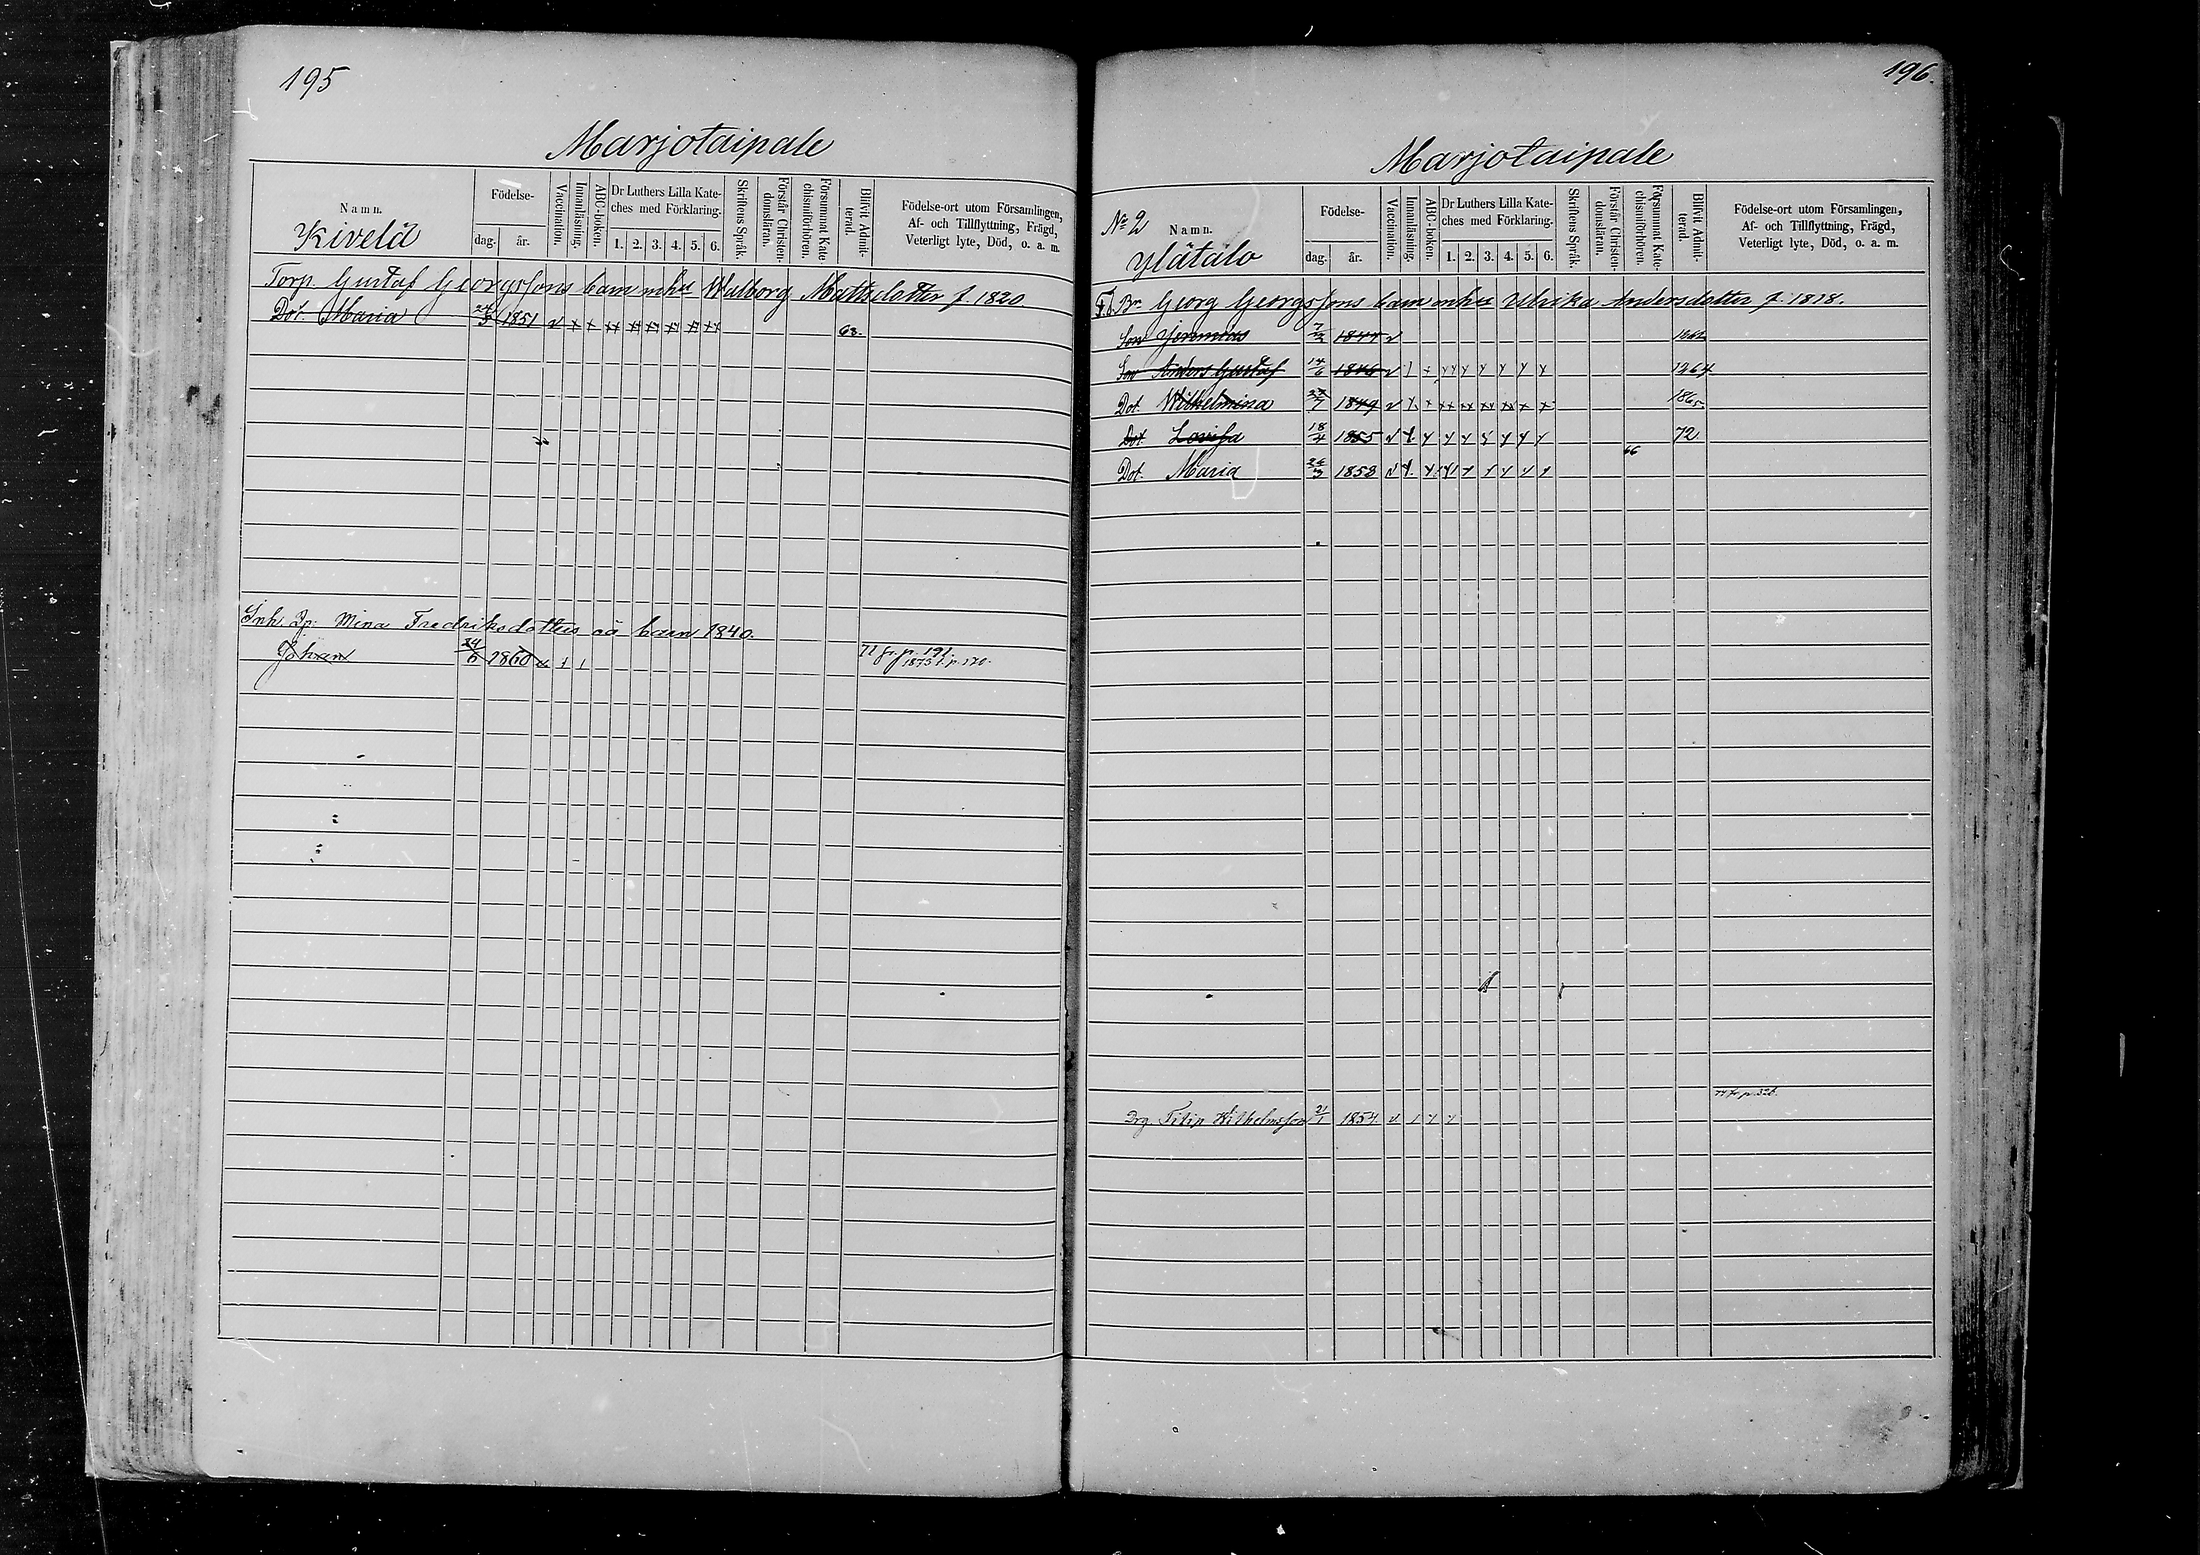 195
Marjotaipale
Namn.
Kivelä
Födelse-
dag.
år.
Vaccination.
Innanläsning.
ABC-boken.
Dr Luthers Lilla Kate-
ches med Förklaring.
1. 2. 3. 4. 5. 6.
Skriftens Språk.
Förstår Christen-
domsläran.
Försummat Kate-
chismiförhören.
Blifvit Admit-
terad.
Födelse-ort utom Församlingen,
Af- och Tillflyttning, Frägd,
Veterligt lyte, Död, o. a. m.
Torp. Gustaf Georgssons barn mhu Walborg Mattsdotter f. 1820
Dot. Maria 1851 63.
Inh. Mina Fredriksdotters oä barn 1840.
Johan 24/6 1860 71 fr. p. 191.
1875 t. p. 170.
196.
Marjotaipale
No 2
Namn.
Ylätalo
Födelse-
dag.
år.
Vaccination.
Innanläsning.
ABC-boken.
Dr Luthers Lilla Kate-
ches med Förklaring.
1. 2. 3. 4. 5. 6.
Skriftens Språk.
Förstår Christen-
domsläran.
Försummat Kate-
chismiförhören.
Blifvit Admit-
terad.
Födelse-ort utom Församlingen,
Af- och Tillflyttning, Frägd,
Veterligt lyte, Död, o. a. m.
Georg Georgssons barn mhu Ulrika Andersdotter f. 1818.
Son Jeremias 1844
Son Anders Gustaf 14/6 1846 1864
Dot. Wilhelmina 1849 1865
Dot. Lovisa 18/4 1855 72
66
Dot. Maria 26/3 1858
Drg. Filip Wilhelmsson 21/1 1854